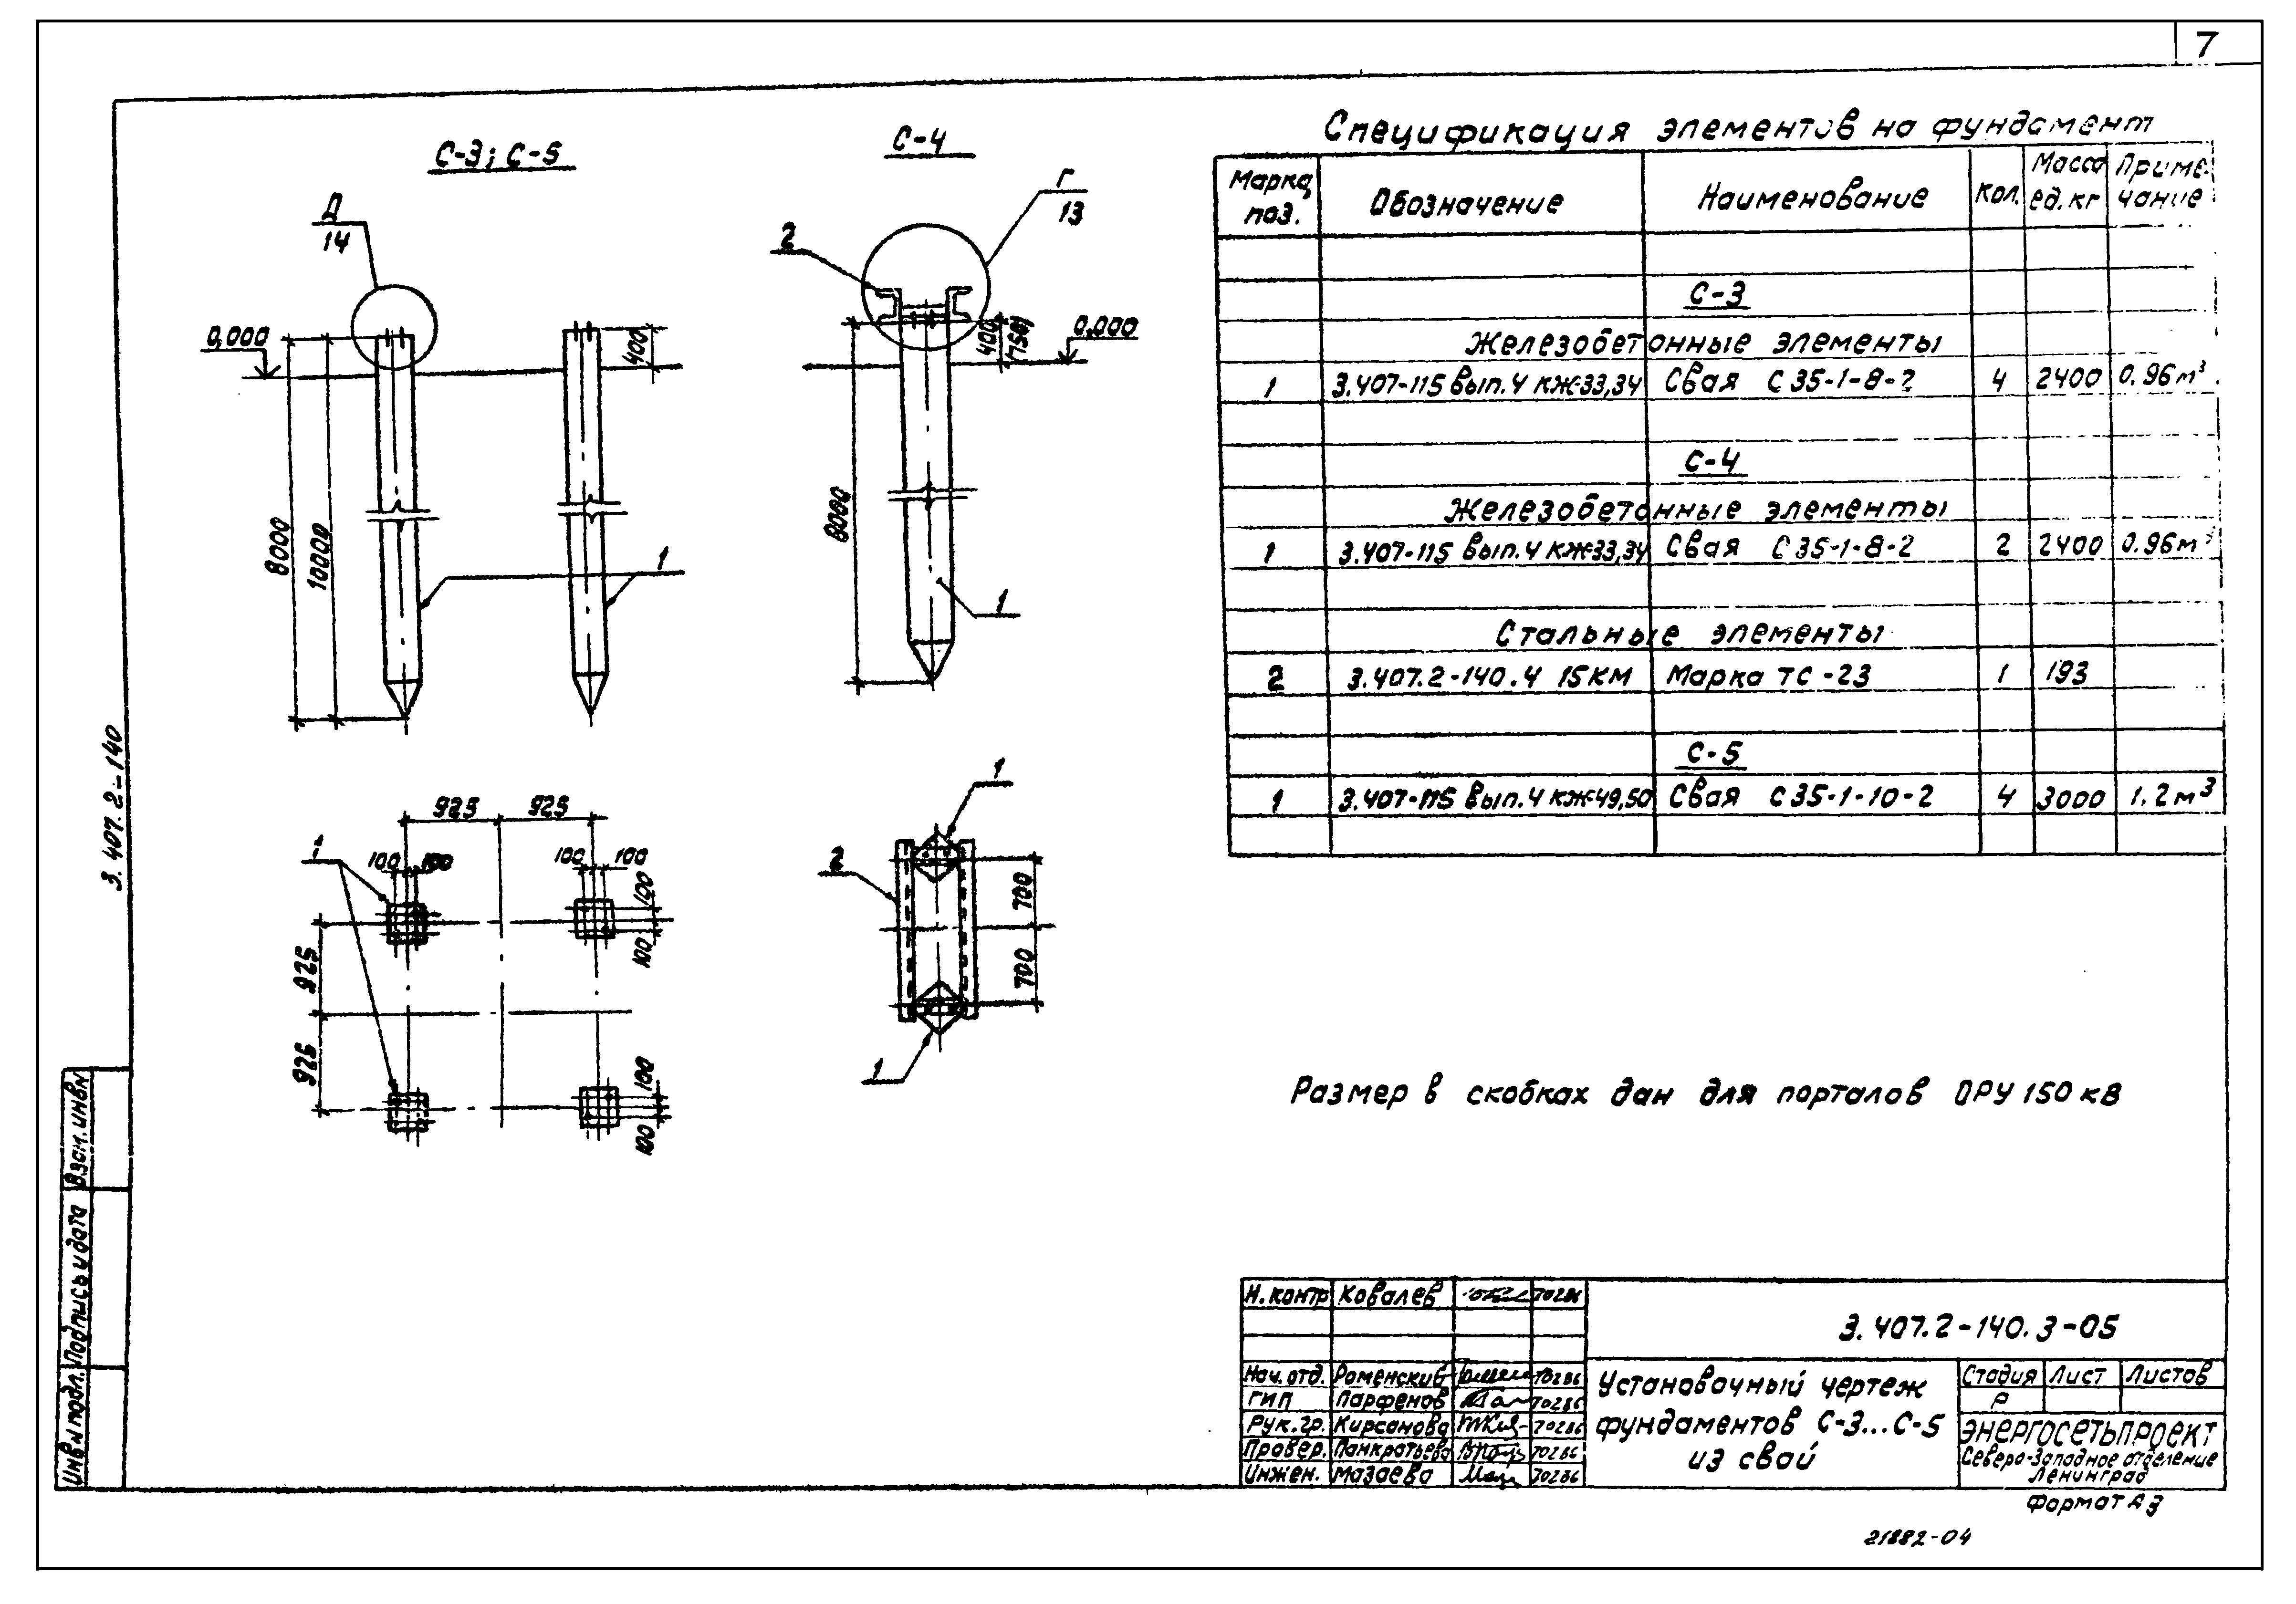 7
С-3; С-5
С-4
Спецификация элементов на фундамент
Марка поз. Обозначение Наименование Кол. Масса ед. кг Примечание
С-3
Железобетонные элементы
1 3.407-115 вып.4 КЖ-33,34 Свая С 35-1-8-2 4 2400 0.96 м³
С-4
Железобетонные элементы
1 3.407-115 вып.4 КЖ-33,34 Свая С 35-1-8-2 2 2400 0.96 м³
Стальные элементы
2 3.407.2-140.4 15КМ Марка ТС-23 1 193
С-5
1 3.407-115 вып.4 КЖ-49,50 Свая С 35-1-10-2 4 3000 1.2 м³
Д
14
0,000
400
8000
10000
1
2
Г
13
400
(750)
0,000
8000
1
925 925
1
100 100
100 100
100
100
925
925
100
100
1
2
700
700
1
Размер в скобках дан для порталов ОРУ 150 кВ
3.407.2-140
Взам. инв N
Подпись и дата
Инв N подл.
Н. контр Ковалев 70286
3.407.2-140.3-05
Нач. отд. Роменский 70286
ГИП Парфенов 70286
Рук. гр. Кирсанова 70286
Провер. Панкратьева 70286
Инжен. Мазаева 70286
Установочный чертеж
фундаментов С-3...С-5
из свай
Стадия Лист Листов
Р
ЭНЕРГОСЕТЬПРОЕКТ
Северо-Западное отделение
Ленинград
Формат А3
21882-04